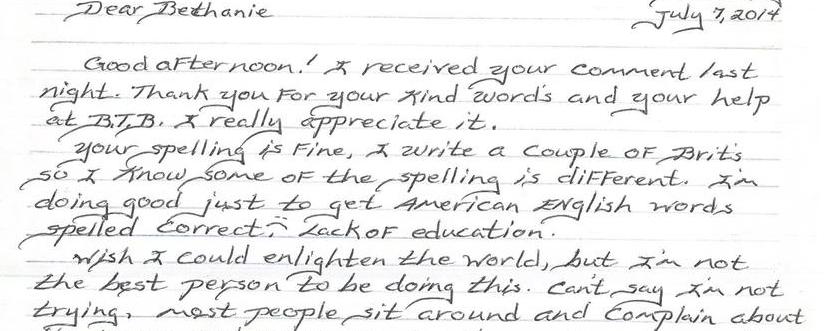 Dear Bethanie July 7, 2014
Good afternoon! I received your comment last
night. Thank you for your kind word's and your help
at B.T.B. I really appreciate it.
Your spelling is fine, I write a couple of Brit's
so I know some of the spelling is different. I'm
doing good just to get American English words
spelled correct. Lack of education.
Wish I could enlighten the world, but I'm not
the best person to be doing this. Can't say I'm not
trying, most people sit around and complain about